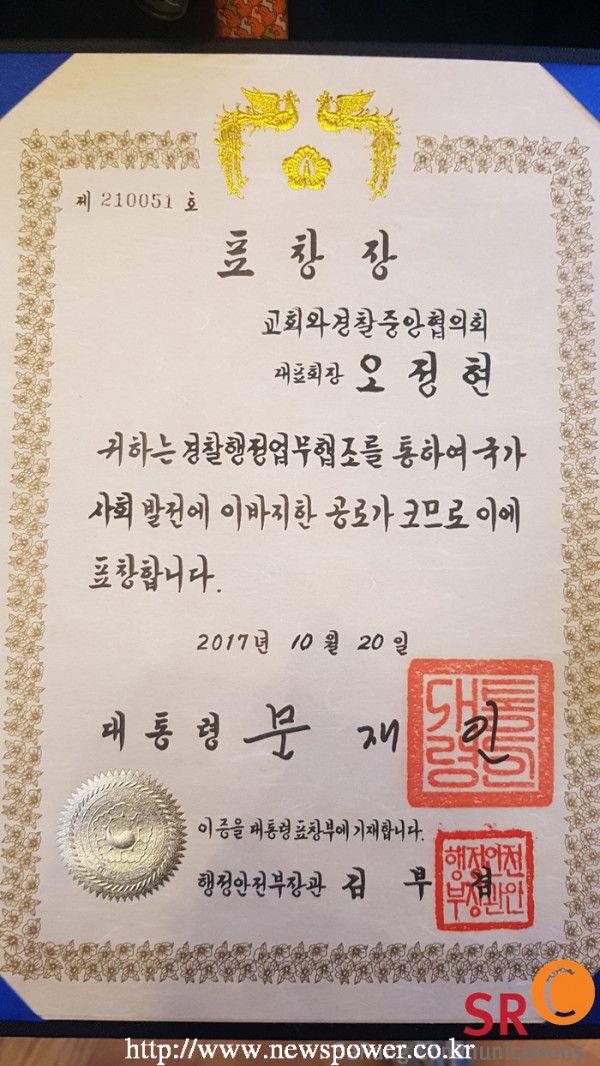 제 210051 호
표 창 장
교회와경찰중앙협의회
대표회장 오 정 현
귀하는 경찰행정업무협조를 통하여 국가
사회 발전에 이바지한 공로가 크므로 이에
표창합니다.
2017년 10월 20일
대 통 령 문 재 인
대통
령인
이 증을 대통령표창부에 기재합니다.
행정안전부장관 김 부 겸
행정안전
부장관인
SRC
munications
http://www.newspower.co.kr